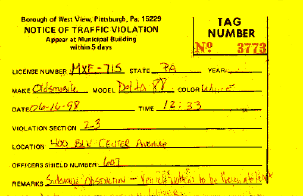 Borough of West View, Pittsburgh, Pa. 15229
NOTICE OF TRAFFIC VIOLATION
Appear at Municipal Building
within 5 days
TAG
NUMBER
No 3773
LICENSE NUMBER MXF-715 STATE PA YEAR
MAKE Oldsmobile MODEL Delta 88 COLOR White
DATE 06-16-98 TIME 12:33
VIOLATION SECTION 2-3
LOCATION 400 BLK CENTER Avenue
OFFICERS SHIELD NUMBER 607
REMARKS Sidewalk Obstruction - to be